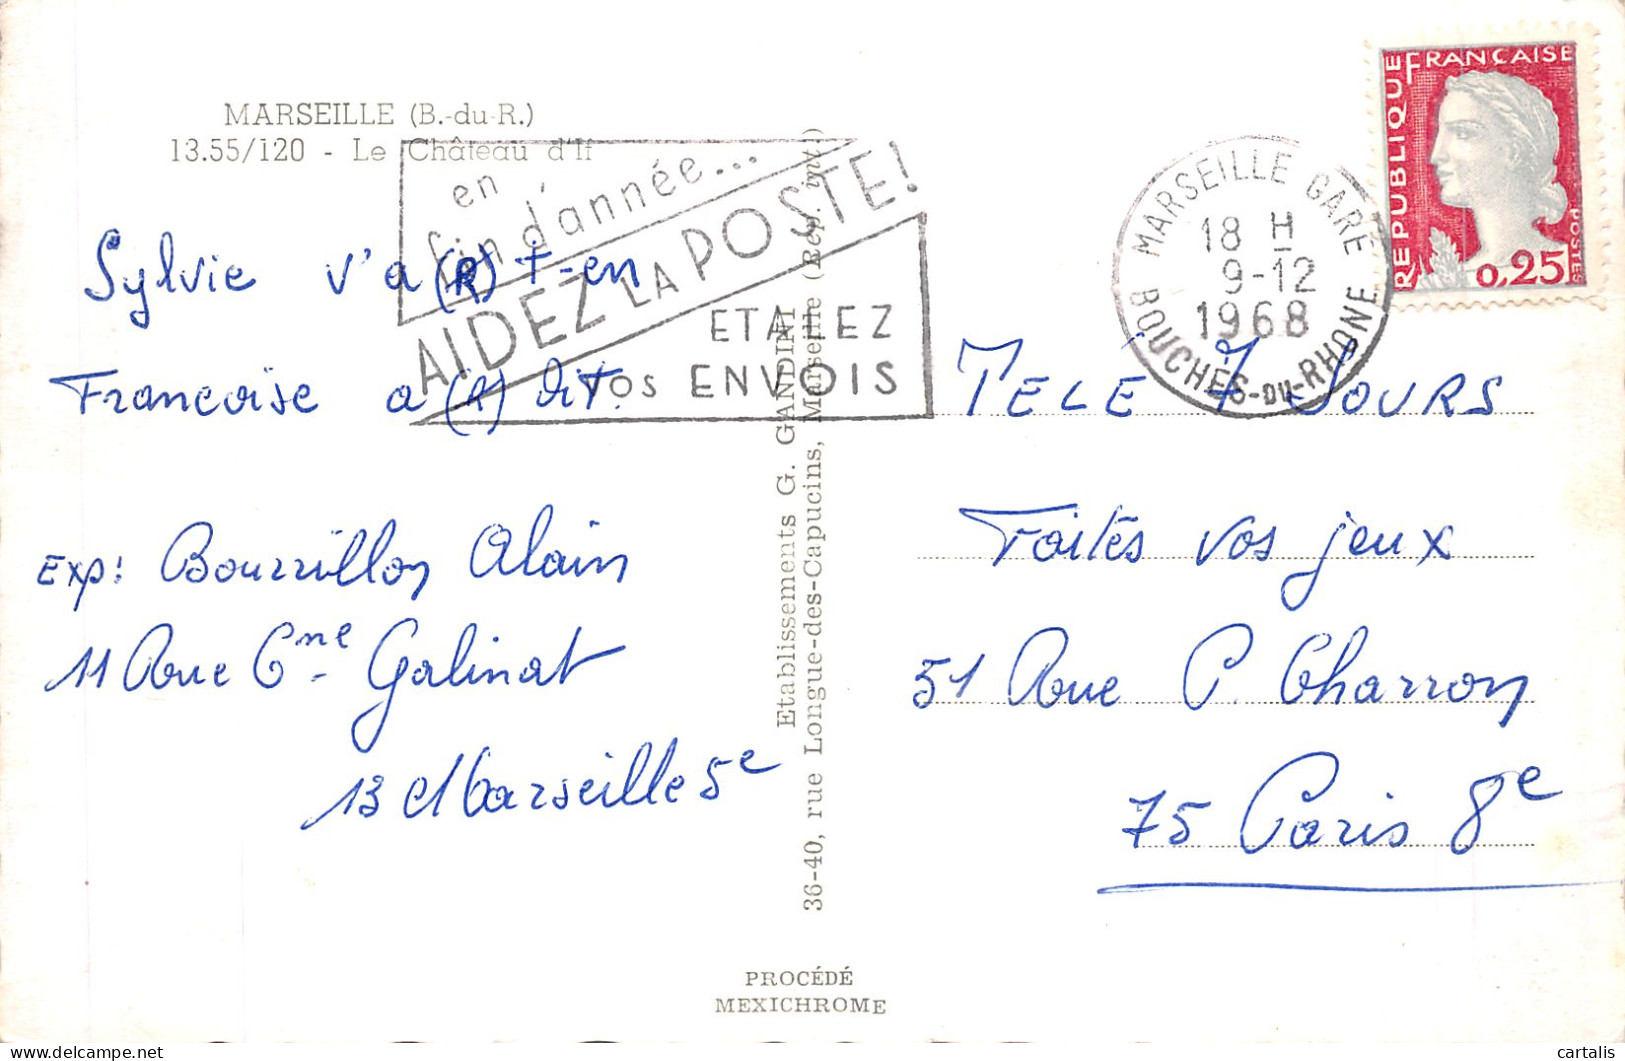 MARSEILLE (B.-du-R.)
13.55/120 - Le Château d'If
en
fin d'année...
AIDEZ LA POSTE!
ETALEZ
VOS ENVOIS
MARSEILLE GARE
18 H
9-12
1968
BOUCHES-DU-RHONE
REPUBLIQUE FRANÇAISE
POSTES
0,25
Sylvie v'a (R) t-en
Françoise a (R) dit.
Exp: Bourrillon Alain
11 Rue Cne Galinat
13 Marseille 5e
Etablissements G. GANDINI
36-40, rue Longue-des-Capucins, Marseille (Rep. int.)
TELE 7 JOURS
Faites vos jeux
51 Rue P. Charron
75 Paris 8e
PROCÉDÉ
MEXICHROME
cartalis